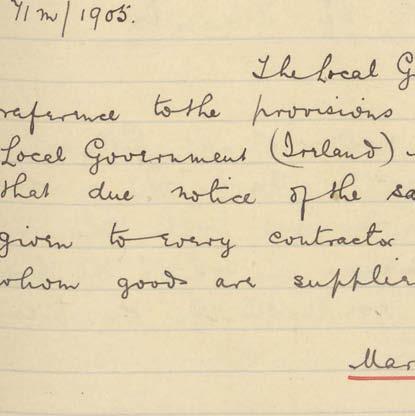 71 m/1905.
The Local G
reference to the provisions
Local Government (Ireland)
that due notice of the sa
given to every contractor
whom goods are supplie
Mar